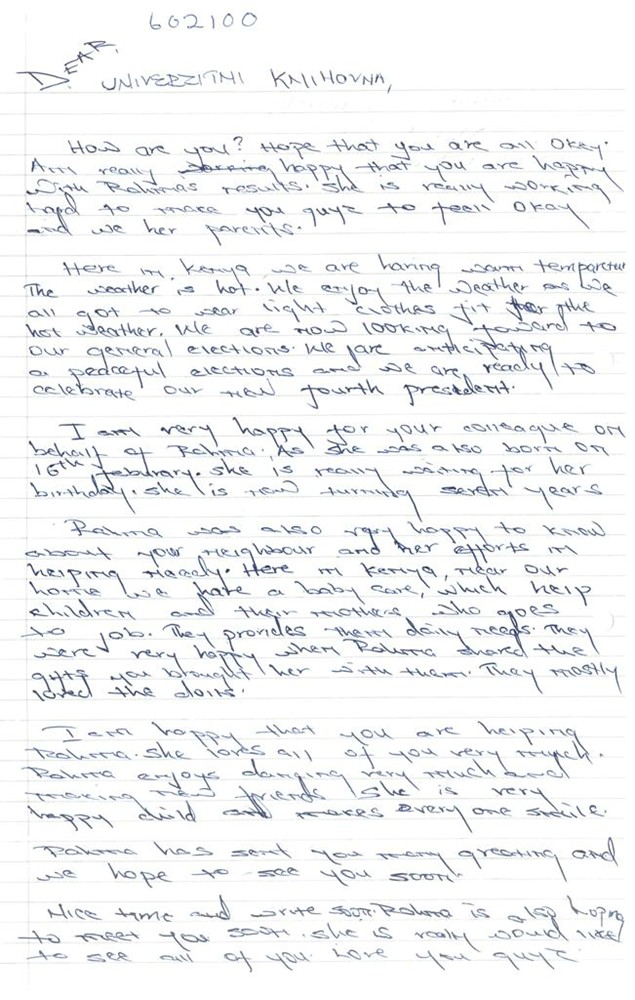 602100
DEAR,
UNIVERZITNI KNIHOVNA,
How are you? Hope that you are all okay.
Am really happy that you are happy
with Rahmas results. She is really working
hard to make you guyz to feel okay
and we her parents.
Here in kenya we are having warm temparetur
The weather is hot. We enjoy the weather as we
all got to wear light clothes fit for the
hot weather. We are now looking foward to
our general elections. We are anticipating
a peaceful elections and we are ready to
celebrate our new fourth president.
I am very happy for your colleague on
behalf of Rahma. As she was also born on
16th feburary. she is really waiting for her
birthday. she is now turning seven years
Rahma was also very happy to know
about your neighbour and her efforts in
helping needy. Here in kenya, near our
home we have a baby care, which help
children and their mothers who goes
to job. They provides them daily needs. They
were very happy when Rahma shared the
gifts you brought her with them. They mostly
loved the dolls.
I am happy that you are helping
Rahma. she loves all of you very much.
Rahma enjoys dancing very much and
making new friends. She is very
happy child and makes every one smile.
Rahma has sent you many greeting and
we hope to see you soon.
Nice time and write soon. Rahma is also hoping
to meet you soon. she is really would like
to see all of you. Love you guyz